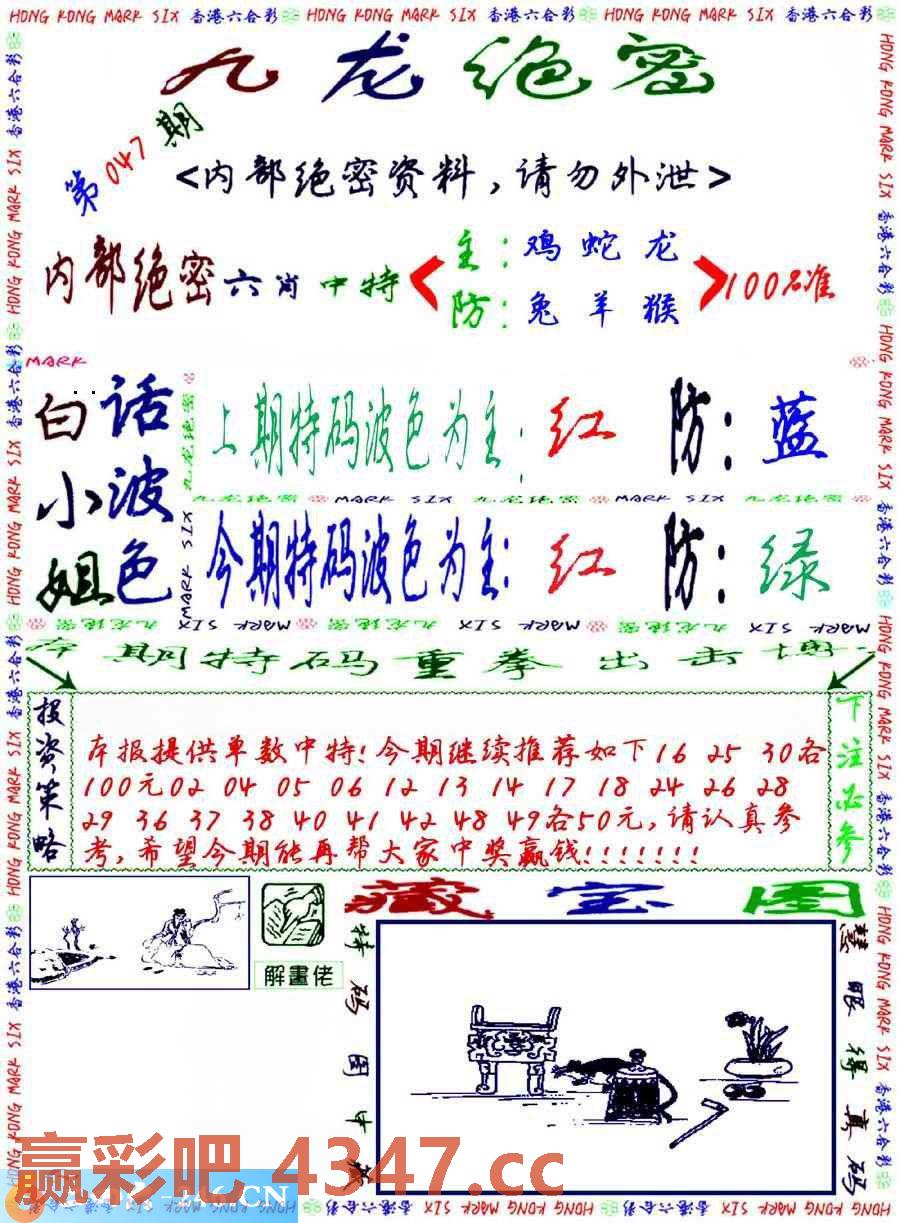 HONG KONG MARK SIX 香港六合彩 HONG KONG MARK SIX 香港六合彩 HONG KONG MARK SIX 香港六合彩 HONG KONG MARK SIX 香港六合彩
九龙绝密
第047期
<内部绝密资料,请勿外泄>
内部绝密六肖中特
主:鸡蛇龙
防:兔羊猴
100%准
MARK
白小姐
话波色
上期特码波色为主: 红 防: 蓝
九龙绝密 MARK SIX 九龙绝密 MARK SIX 九龙绝密
今期特码波色为主: 红 防: 绿
九龙绝密 MARK SIX 九龙绝密 MARK SIX 九龙绝密 MARK SIX
本期特码重拳出击
投资策略
本报提供单数中特!今期继续推荐如下16 25 30各
100元02 04 05 06 12 13 14 17 18 24 26 28
29 36 37 38 40 41 42 48 49各50元,请认真参
考,希望今期能再帮大家中奖赢钱!!!!!!!
下注必参
解畫佬
藏宝图
特码图中
慧眼得真码
赢彩吧 4347.cc
.CN